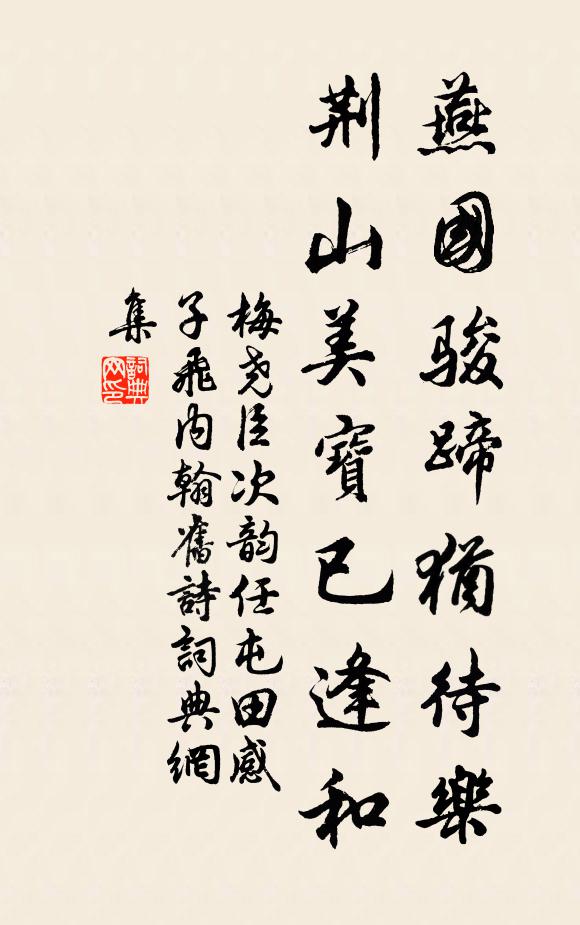 燕國駿蹄猶待樂
荆山美寶已逢和
梅堯臣次韵任屯田感
子飛内翰舊詩詞典網
集
詞典
网印